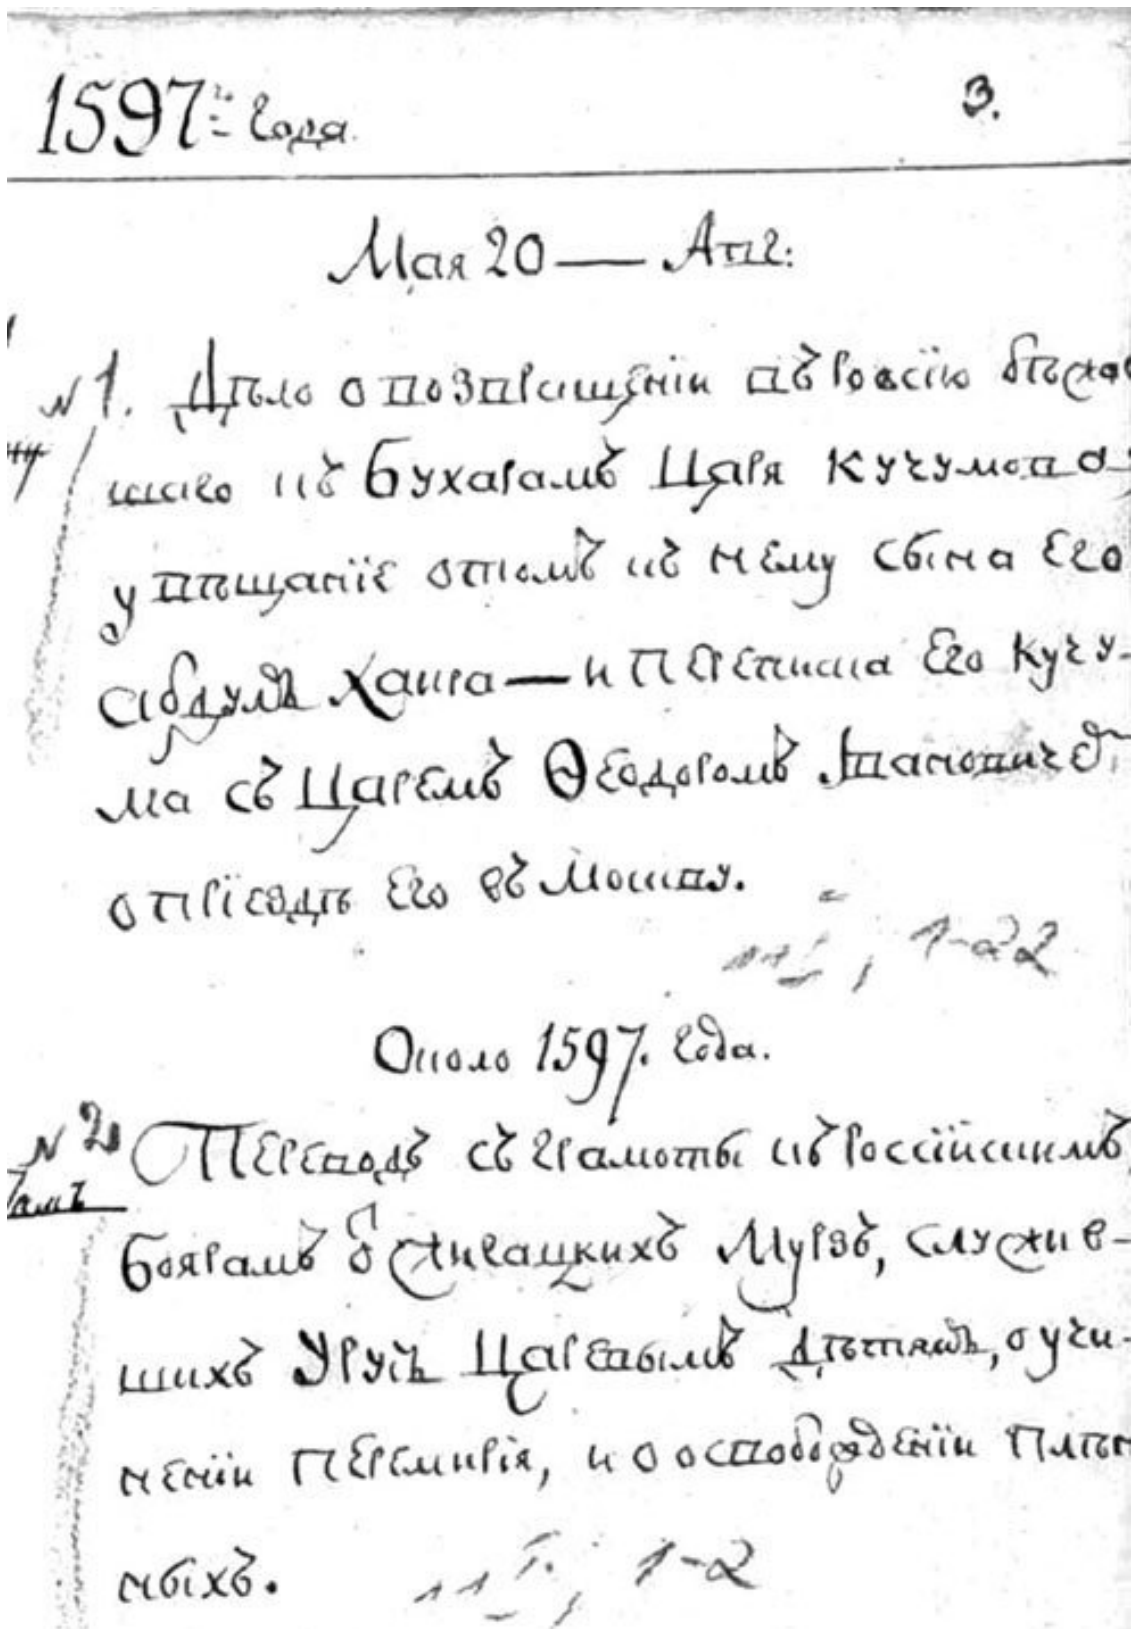 1597го года. 3.
Мая 20 — Авг:
№ 1. Дѣло о возвращенїи въ Россїю бѣжав
шаго къ Бухарамъ Царя Кучумова
увѣщанїе отомъ къ нему сына Его
Абдулъ Хаира — и переписка Его Кучу-
ма съ Царемъ Ѳеодоромъ Ивановичемъ
о прїездѣ Его въ Москву.
1-22
Около 1597. года.
№ 2 Переводъ съ грамоты къ Россїйскимъ
Боярамъ отъ Мурзъ, служив-
шихъ Урусъ Царевымъ дѣтямъ, о учи-
ненїи перемирїя, и о освобожденїи плѣн
ныхъ.
1-2